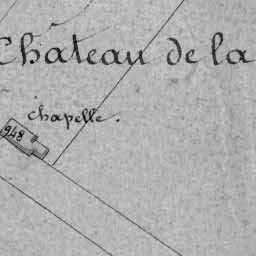 Chateau de la
chapelle.
948